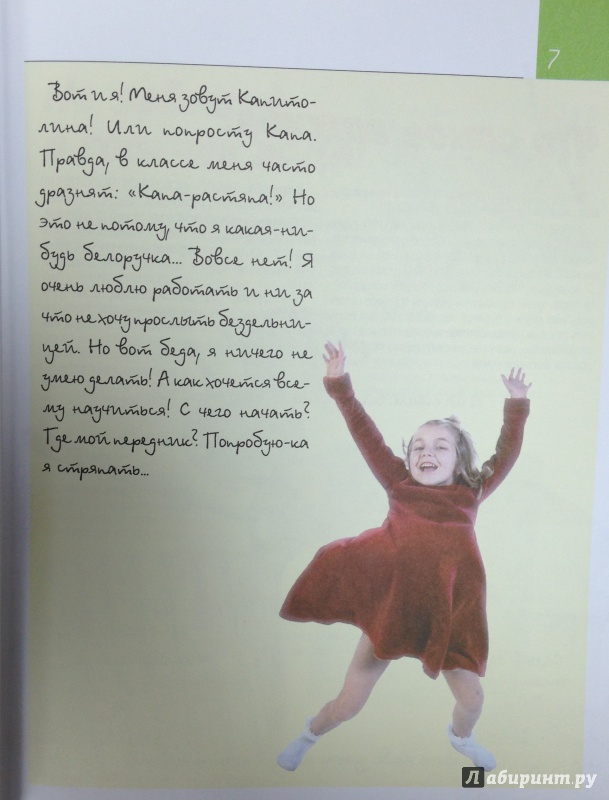 7
Вот и я! Меня зовут Капито-
лина! Или попросту Капа.
Правда, в классе меня часто
дразнят: «Капа-растяпа!» Но
это не потому, что я какая-ни-
будь белоручка... Вовсе нет! Я
очень люблю работать и ни за
что не хочу прослыть бездельни-
цей. Но вот беда, я ничего не
умею делать! А как хочется все-
му научиться! С чего начать?
Где мой передник? Попробую-ка
я стряпать...
Лабиринт.ру